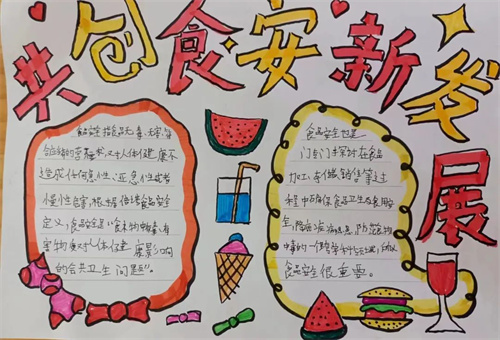 共创食安新发展
食品安全指食品无毒、无害,符合
应当有的营养要求,对人体健康不
造成任何急性、亚急性或者
慢性危害。根据倍诺食品安全
定义,食品安全是“食物中有毒、有
害物质对人体健康影响
的公共卫生问题”。
食品安全也是一
门专门探讨在食品
加工、存储、销售等过
程中确保食品卫生及食用安
全,降低疾病隐患,防范食物
中毒的一个跨学科领域,所以
食品安全很重要。